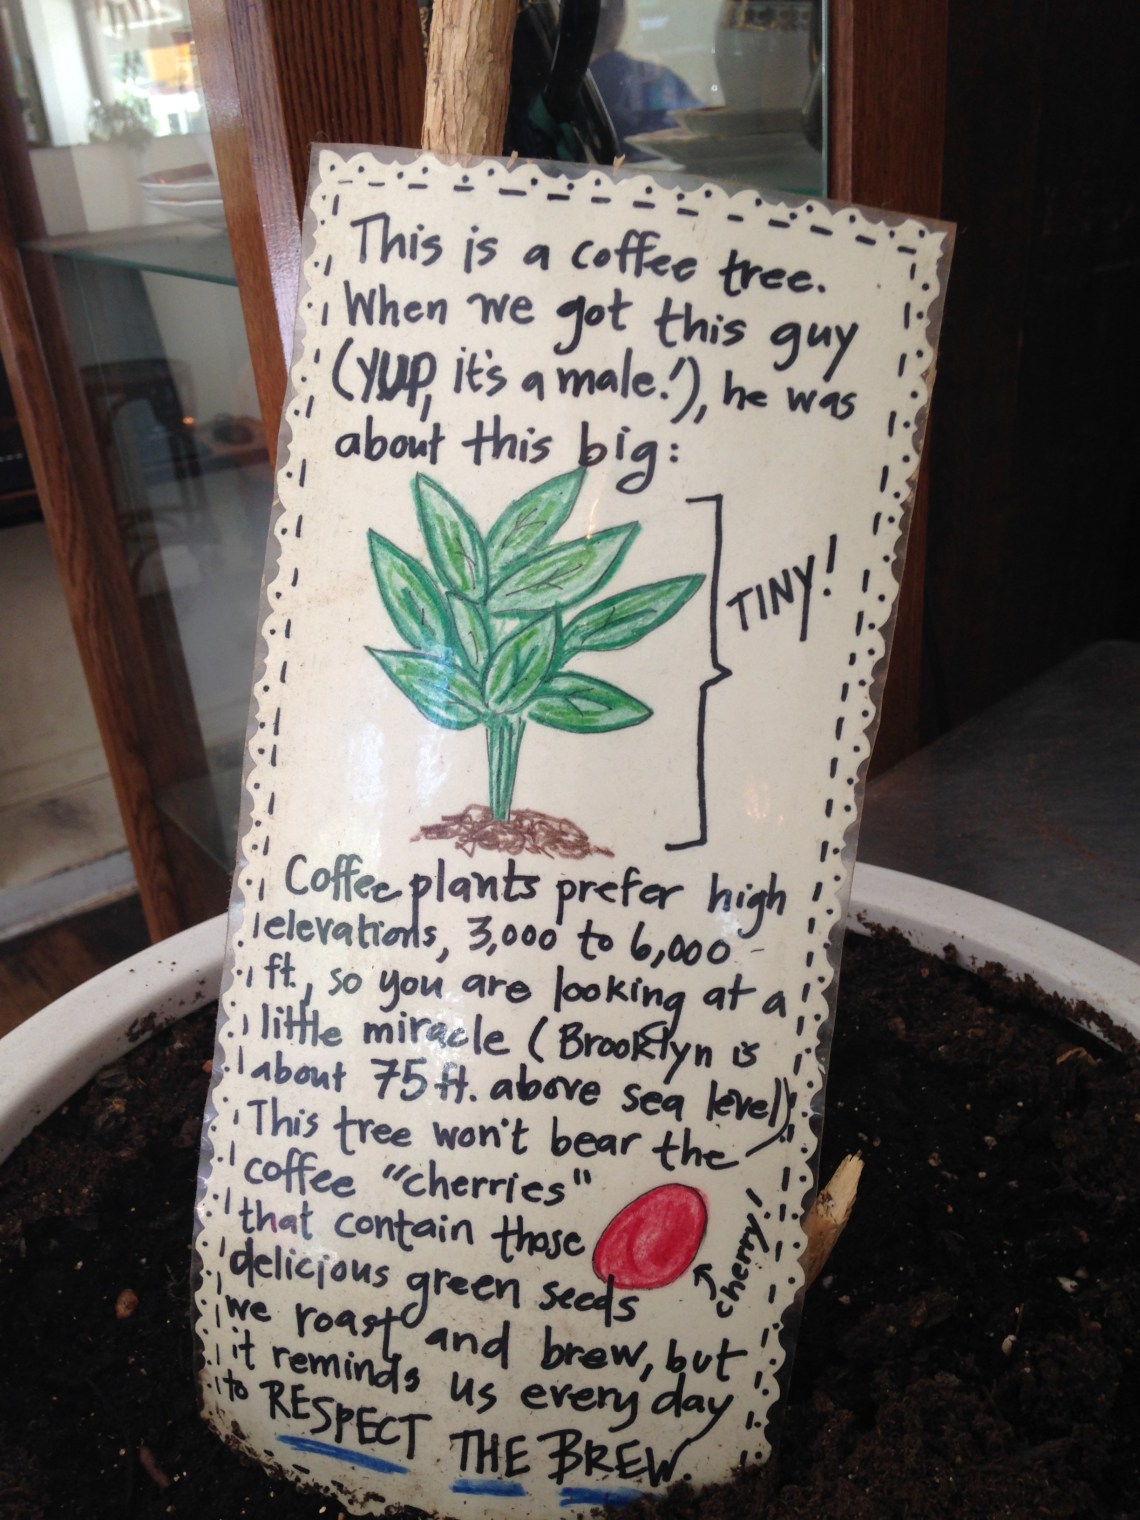 This is a coffee tree.
When we got this guy
(YUP, it's a male!), he was
about this big:
TINY!
Coffee plants prefer high
elevations, 3,000 to 6,000
ft., so you are looking at a
little miracle (Brooklyn is
about 75 ft. above sea level)
This tree won't bear the
coffee "cherries"
that contain those
delicious green seeds
cherry!
we roast and brew, but
it reminds us every day
to RESPECT THE BREW.